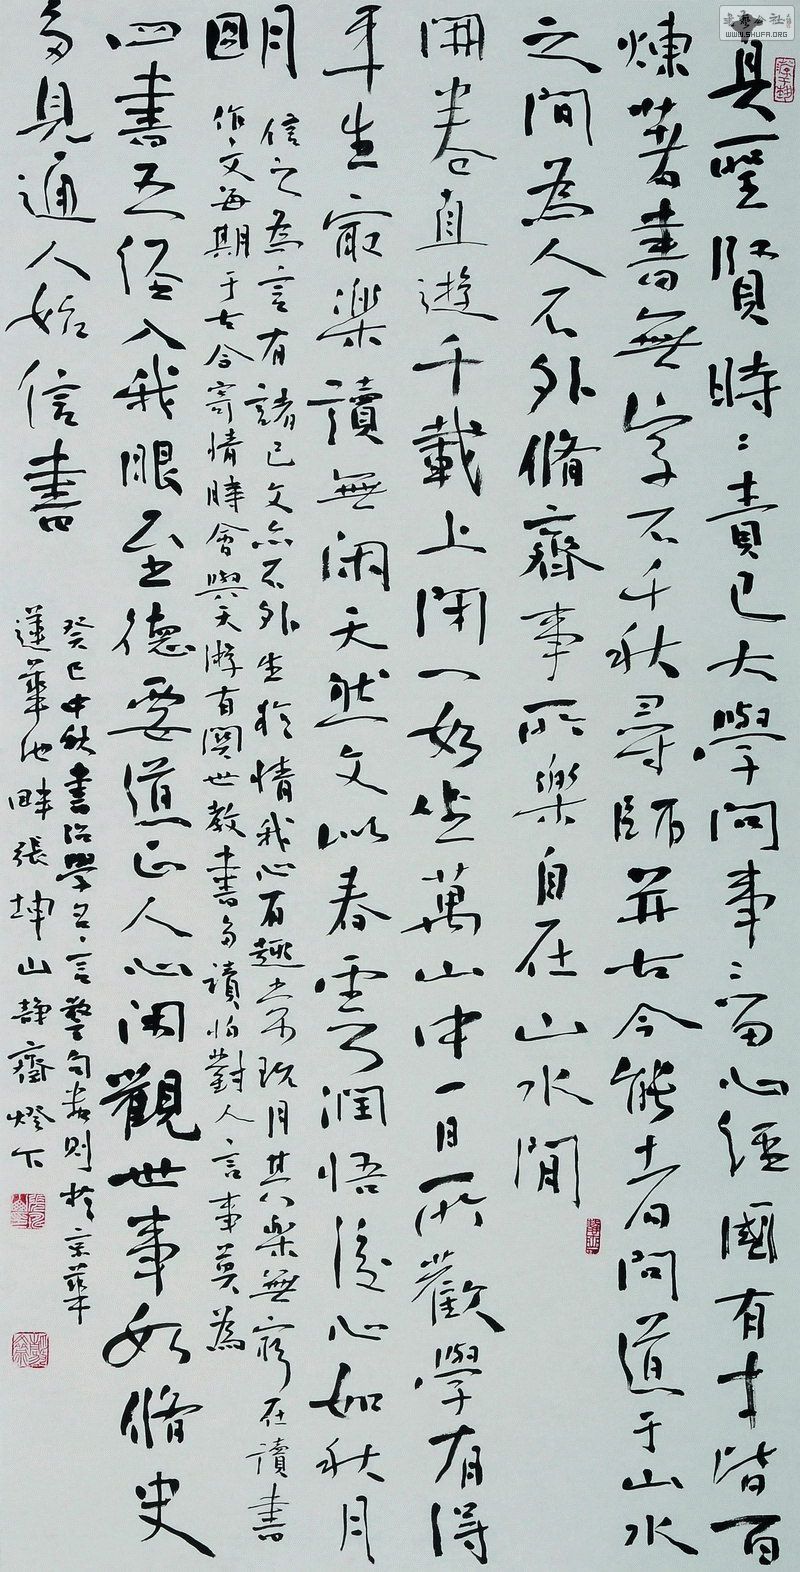 真聖賢時時責己大學問事事留心經國有才皆百
煉著書無字不千秋尋師井古今能者問道于山水
之間為人不外脩齊事所樂自在山水間
開卷直遊千載上閉一如坐萬山中一日所歡學有得
年生最樂讀無閑天然文似春雲乃潤悟後心如秋月
明信之為言有諸己文亦不外生於情我心有趣 月其樂無窮在讀書
圓作文每期于古今寄情時會與天游有關世教書多讀怕對人言事莫為
四書五經入我眼至德要道正人心閑觀世事如脩史
多見通人始信書
癸巳中秋書治學名言警句數則於京華
蓮華池畔張坤山靜齋燈下
書法公社
WWW.SHUFA.ORG